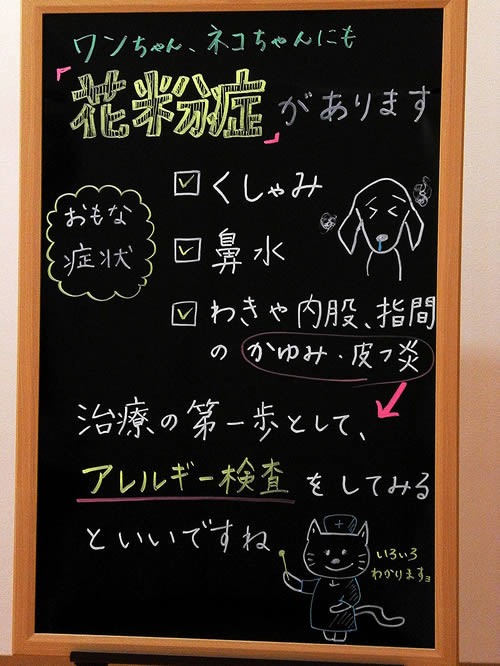 ワンちゃん、ネコちゃんにも
「花粉症」があります
おもな
症状
くしゃみ
鼻水
わきや内股、指間
のかゆみ・皮フ炎
治療の第一歩として、
アレルギー検査をしてみる
といいですね
いろいろ
わかりますョ